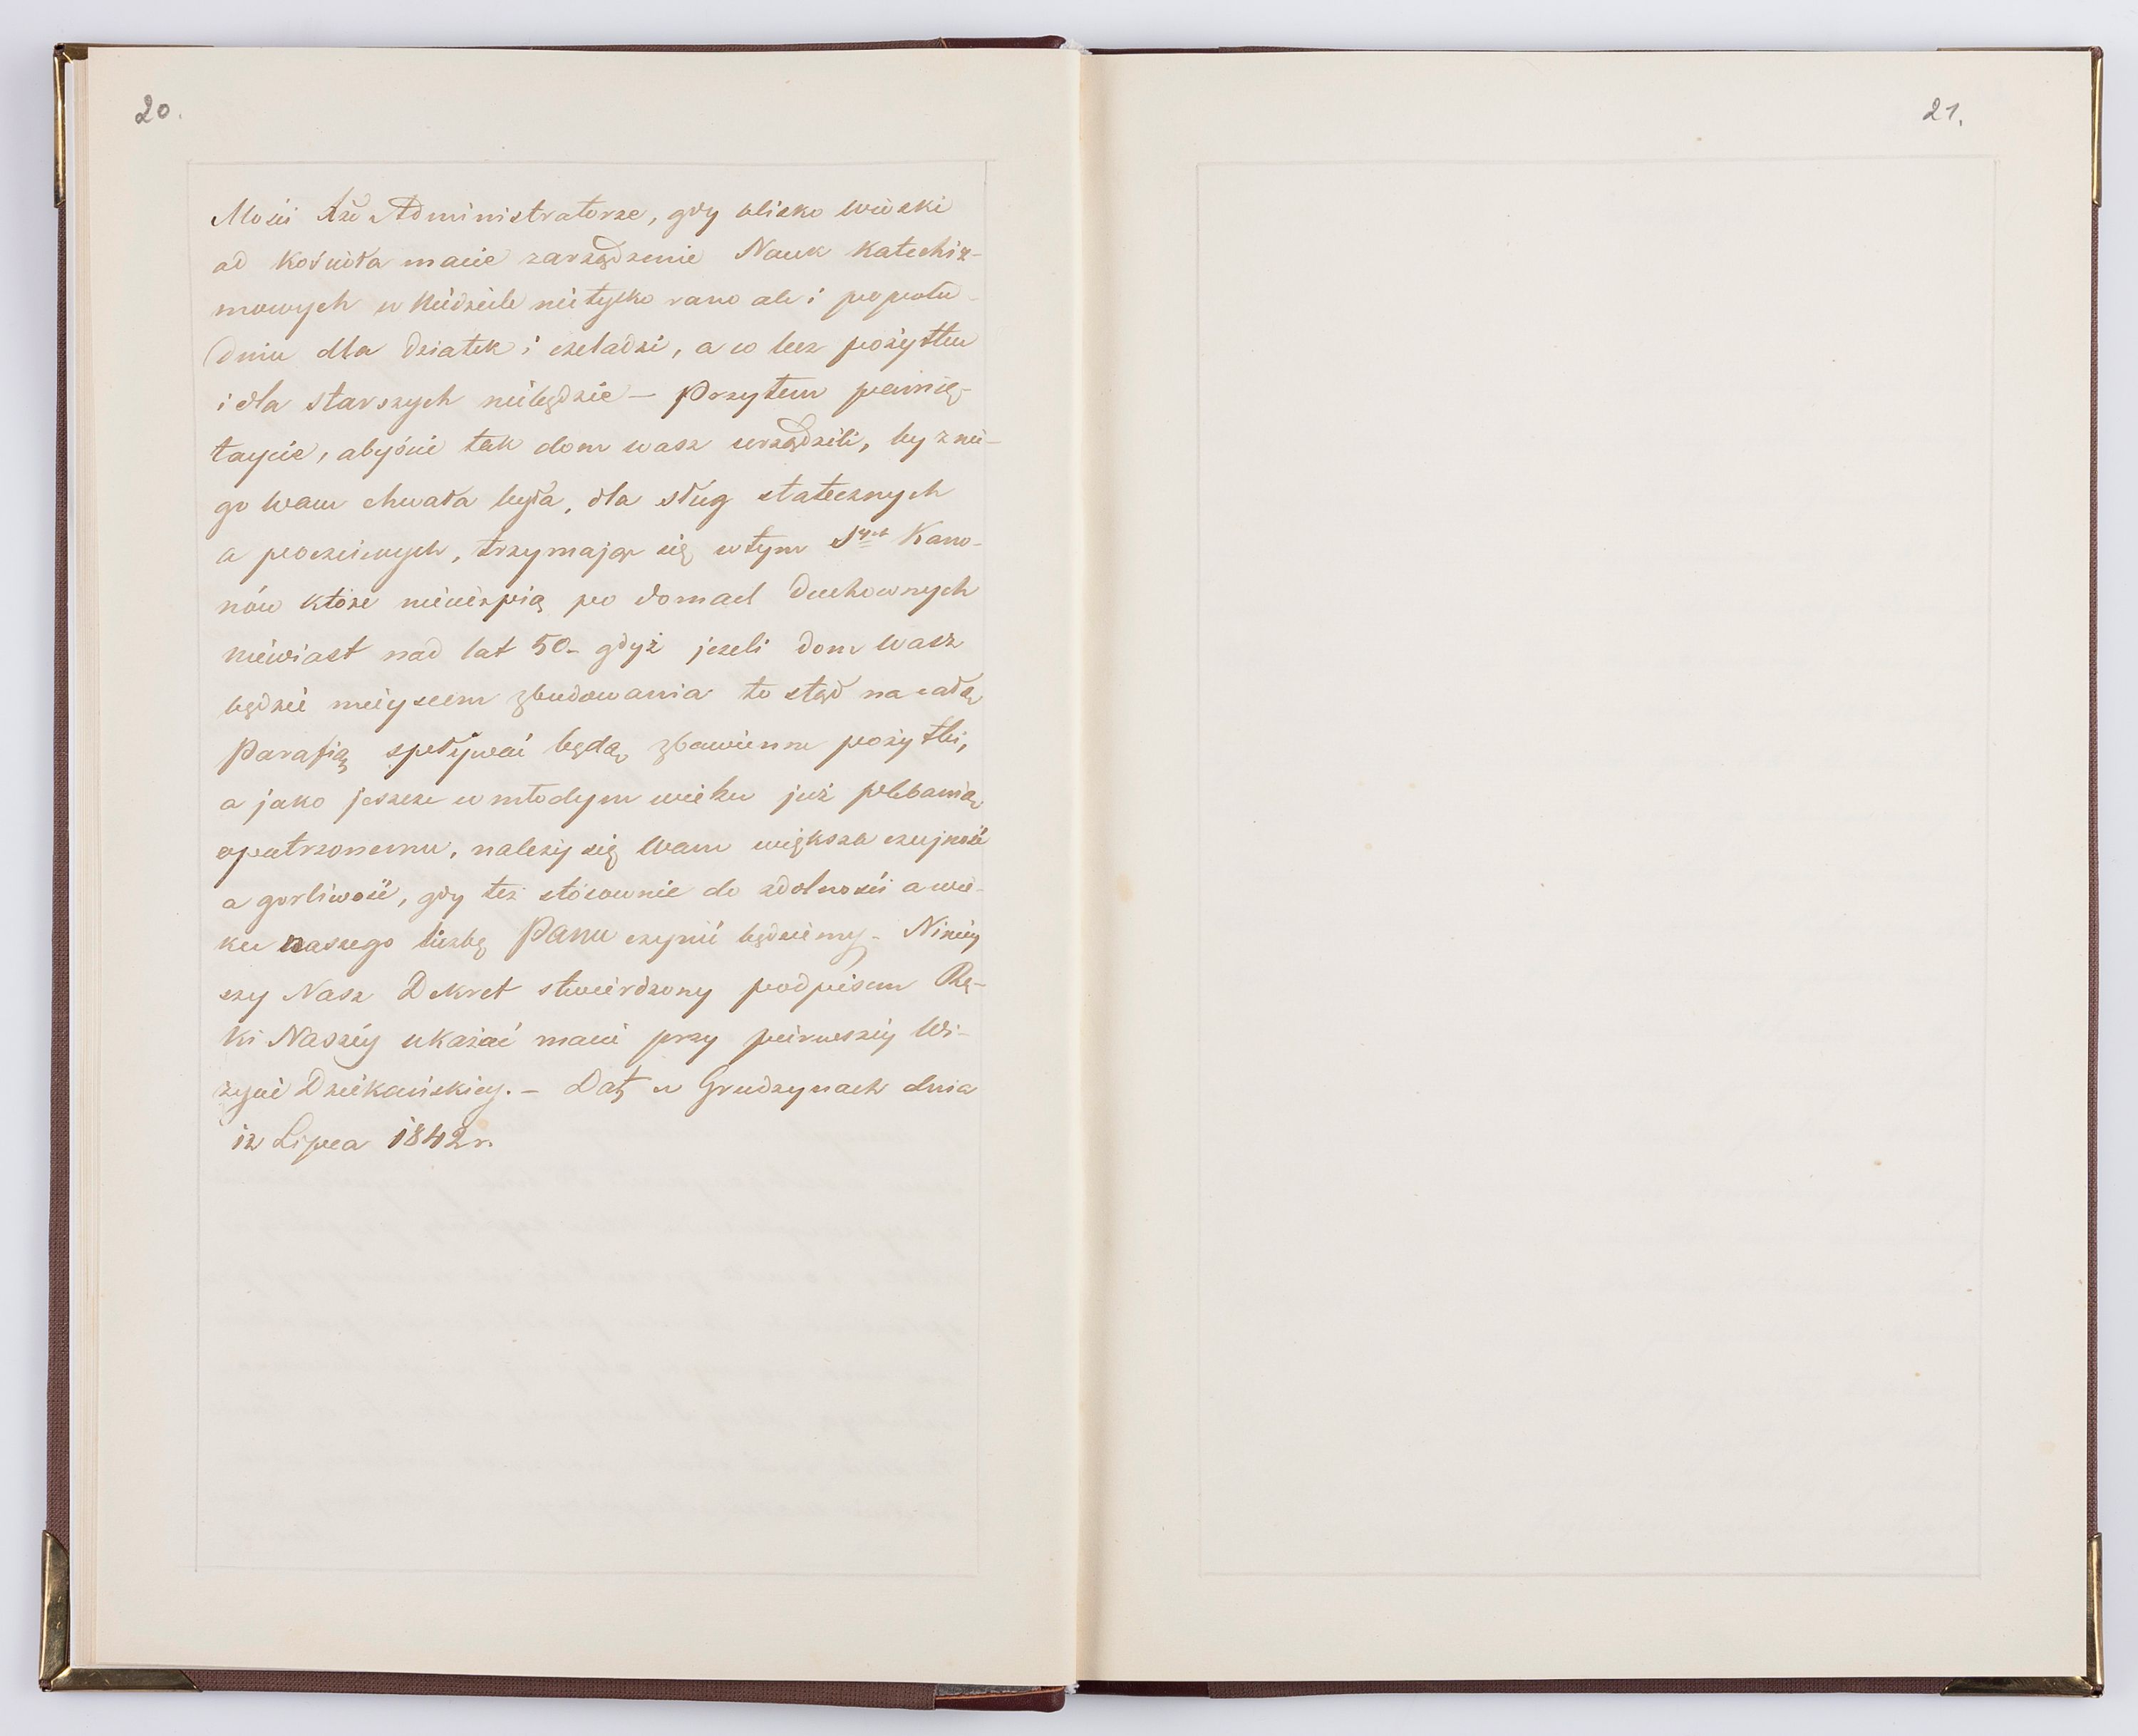 20.
Mości Xże Administratorze, gdy blisko wioski
od Kościoła macie zarządzenie Nauk Katechiz-
mowych w Niedziele nietylko rano ale i popołu-
dniu dla dziatek i czeladzi, a co bez pożytku
i dla starszych niebędzie — Przytem pamię-
taycie, abyście tak dom wasz urządzili, by z nie-
go wam chwała była, dla sług statecznych
a poczciwych, trzymając się wtym Stych Kano-
nów które niecierpią po domach Duchownych
niewiast nad lat 50 - gdyż jezeli dom wasz
będzie mieyscem zbudowania to stąd na całą
Parafią spływać będą zbawienne pożytki,
a jako jeszcze w młodym wieku już plebanią
opatrzonemu, należy się Wam większa czujność
a gorliwość, gdy też stósownie do zdolności a wie-
ku naszego liczbę Panu czynić będziemy - Niniey
szy Nasz Dekret stwierdzony podpisem Rę-
ki Naszéy ukazać macie przy pierwszéy Wi-
zycie Dziekańskiey. — Dat w Grudzynach dnia
12 Lipca 1842 r.
21.